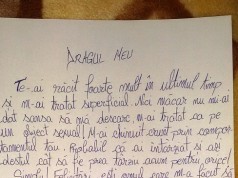 DRAGUL MEU
Te-ai răcit foarte mult în ultimul timp
și m-ai tratat superficial. Nici macar nu mi-ai
dat sansa să mă descarc, m-ai tratat ca pe
un obiect sexual! M-ai chinuit crunt prin compor-
tamentul tău. Probabil că ai întârziat și azi
destul cât să fie prea târziu acum pentru orice!